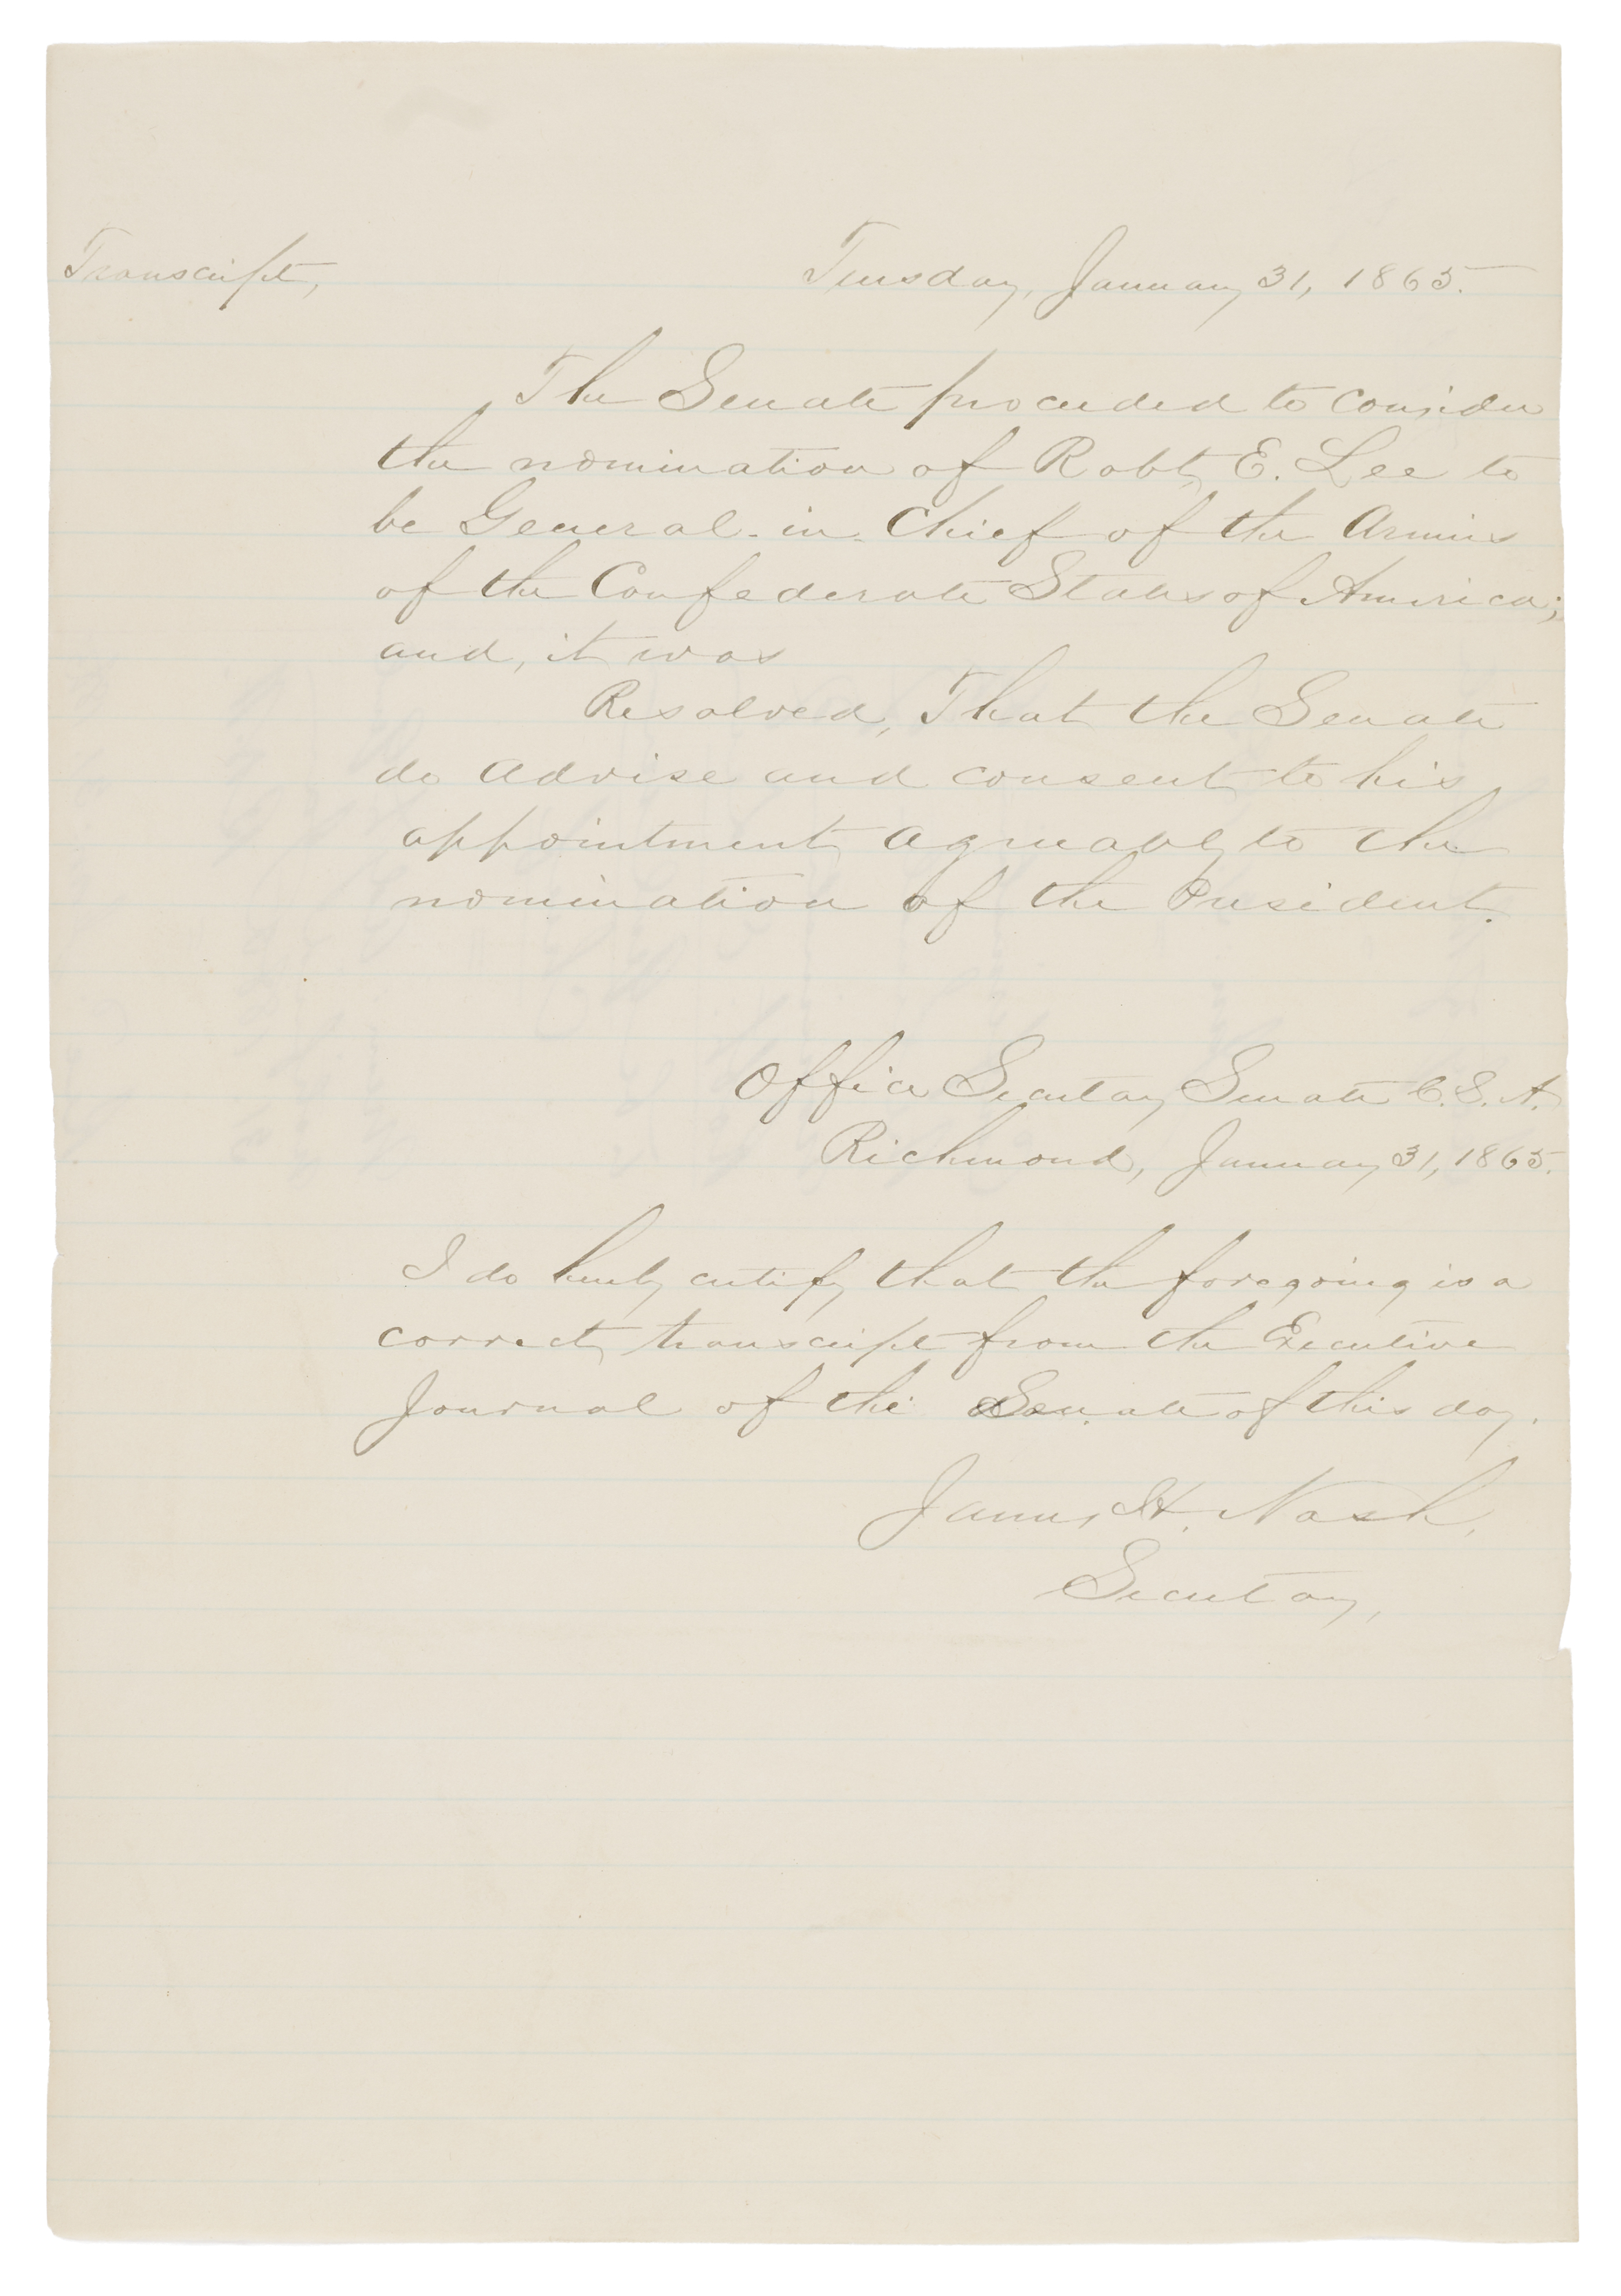 Transcript,
Tuesday, January 31, 1865.
The Senate proceeded to consider
the nomination of Robt. E. Lee to
be General-in-Chief of the Armies
of the Confederate States of America;
and, it was
Resolved, That the Senate
do advise and consent to his
appointment agreeably to the
nomination of the President.
Office Secretary Senate C.S.A.
Richmond, January 31, 1865.
I do hereby certify that the foregoing is a
correct transcript from the Executive
Journal of the Senate of this day.
James H. Nash,
Secretary,